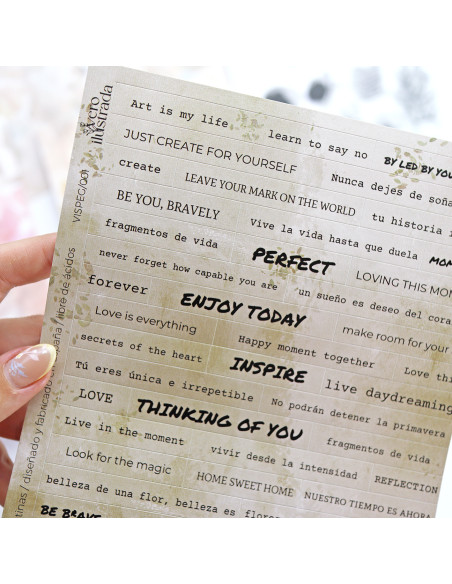 vero
ilustrada
VISPEG/001
tinas / diseñado y fabricado en españa / libre de ácidos
Art is my life learn to say no BY LED BY YOU
JUST CREATE FOR YOURSELF Nunca dejes de soña
create LEAVE YOUR MARK ON THE WORLD tu historia
BE YOU, BRAVELY Vive la vida hasta que duela MOM
fragmentos de vida PERFECT LOVING THIS MOM
never forget how capable you are un sueño es deseo del cora
forever ENJOY TODAY make room for your
Love is everything Happy moment together Love thi
secrets of the heart INSPIRE live daydreaming
Tú eres única e irrepetible No podrán detener la primavera
LOVE THINKING OF YOU fragmentos de vida
Live in the moment vivir desde la intensidad REFLECTION
Look for the magic HOME SWEET HOME NUESTRO TIEMPO ES AHORA
belleza de una flor, belleza es flores
BE BRAVE